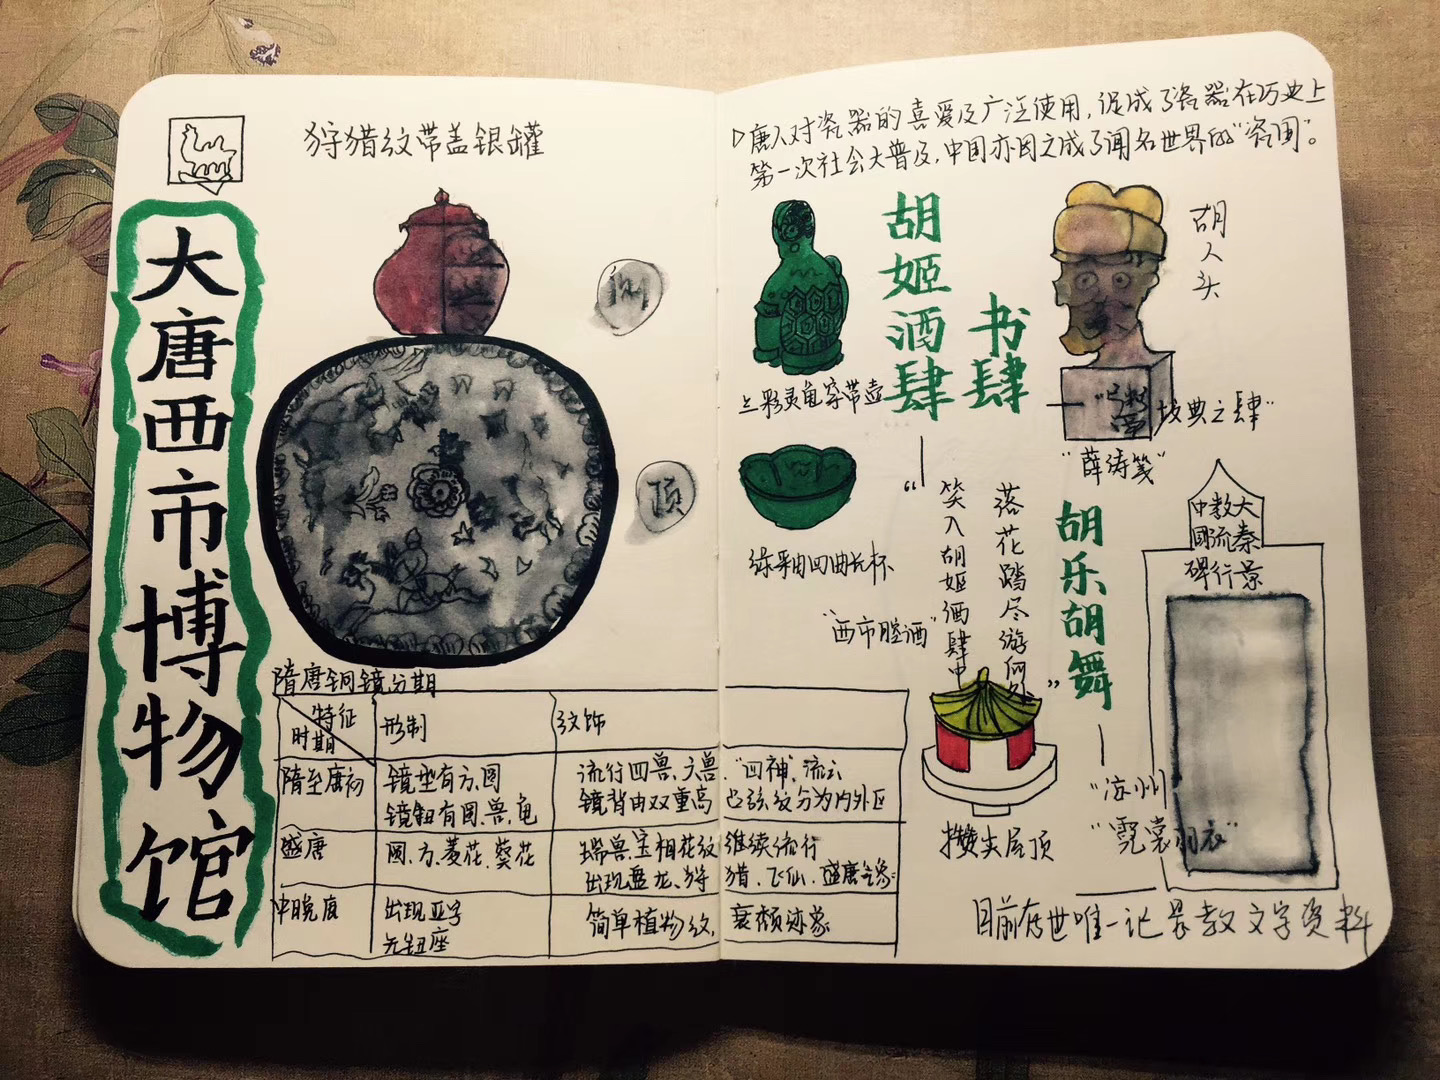 大唐西市博物馆
狩猎纹带盖银罐
侧
顶
隋唐铜镜分期
特征
时期
形制
纹饰
隋至唐初
镜型有方、圆
镜钮有圆、兽、龟
流行四兽、六兽、"四神"、流云
镜背由双重高凸弦纹分为内外区
盛唐
圆、方、菱花、葵花
瑞兽、宝相花纹继续流行
出现盘龙、狩猎、飞仙、盛唐气象
中晚唐
出现亚字
无钮座
简单植物纹,衰颓迹象
唐人对瓷器的喜爱及广泛使用,促成了瓷器在历史上
第一次社会大普及,中国亦因之成了闻名世界的"瓷国"。
三彩灵龟穿带壶
胡姬酒肆
书肆
胡人头
坟典之肆"
"薛涛笺"
绿釉四曲长杯
"西市腔酒"
落花踏尽游何处"
"笑入胡姬酒肆中
攒尖屋顶
胡乐胡舞
"凉州"
"霓裳羽衣"
大秦景
教流行
中國碑
目前存世唯一记景教文字资料